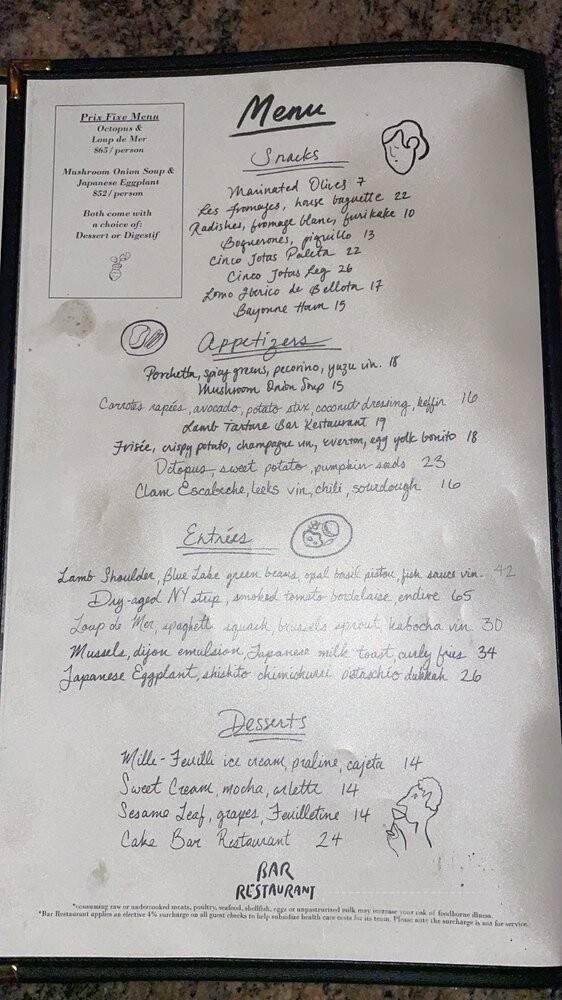 Prix Fixe Menu
Octopus &
Loup de Mer
$65/person
Mushroom Onion Soup &
Japanese Eggplant
$52/person
Both come with
a choice of:
Dessert or Digestif
Menu
Snacks
Marinated Olives 7
Les fromages, house baguette 22
Radishes, fromage blanc, furikake 10
Boquerones, piquillo 13
Cinco Jotas Paleta 22
Cinco Jotas Leg 26
Lomo Iberico de Bellota 17
Bayonne Ham 15
Appetizers
Porchetta, spicy greens, pecorino, yuzu vin. 18
Mushroom Onion Soup 15
Carrotes rapées, avocado, potato stix, coconut dressing, keffir 16
Lamb Tartare Bar Restaurant 19
Frisée, crispy potato, champagne vin, everton, egg yolk bonito 18
Octopus sweet potato, pumpkin seeds 23
Clam Escabeche, leeks vin, chili, sourdough 16
Entrées
Lamb Shoulder, Blue Lake green beans, opal basil pistou, fish sauce vin. 42
Dry-aged NY strip, smoked tomato bordelaise, endive 65
Loup de Mer, spaghetti squash, brussels sprout, kabocha vin. 30
Mussels, dijon emulsion, Japanese milk toast, curly fries 34
Japanese Eggplant, shishito chimichurri pistaschio dukkah 26
Desserts
Mille-Feuille ice cream, praline, cajeta 14
Sweet Cream, mocha, arlette 14
Sesame Leaf, grapes, Feuilletine 14
Cake Bar Restaurant 24
BAR
RESTAURANT
*consuming raw or undercooked meats, poultry, seafood, shellfish, eggs or unpasteurized milk may increase your risk of foodborne illness.
*Bar Restaurant applies an elective 4% surcharge on all guest checks to help subsidize health care costs for its team. Please note the surcharge is not for service.